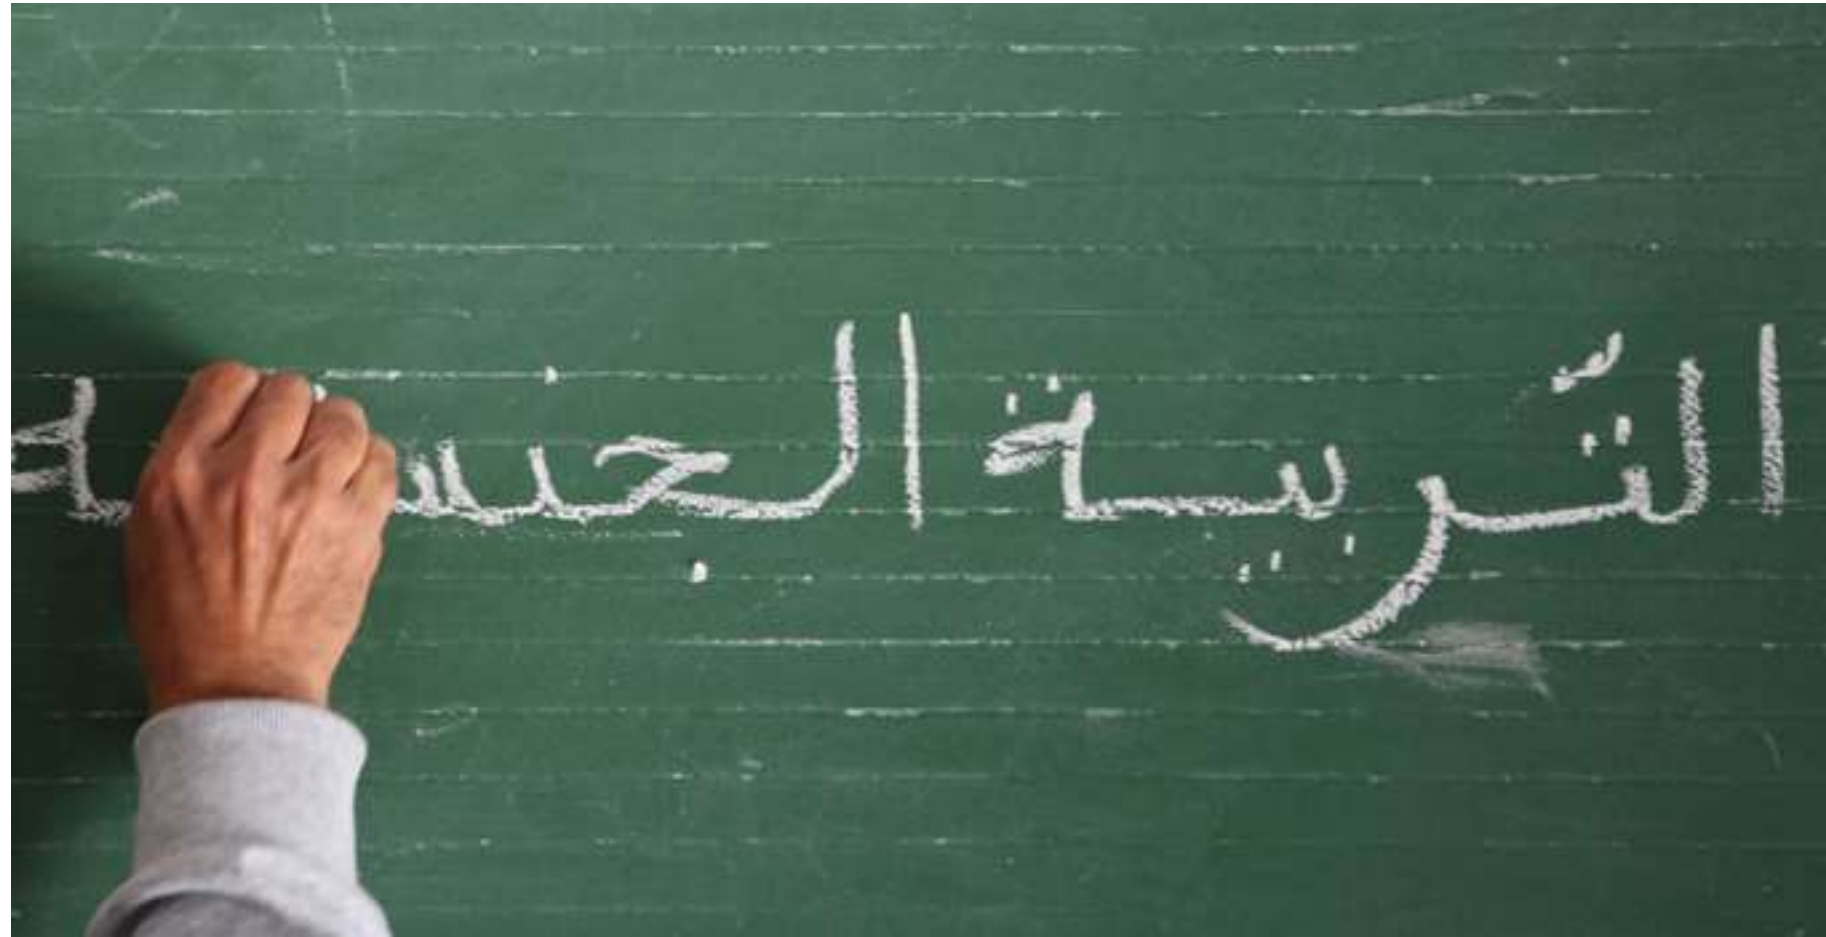 التّربية الجنسيه